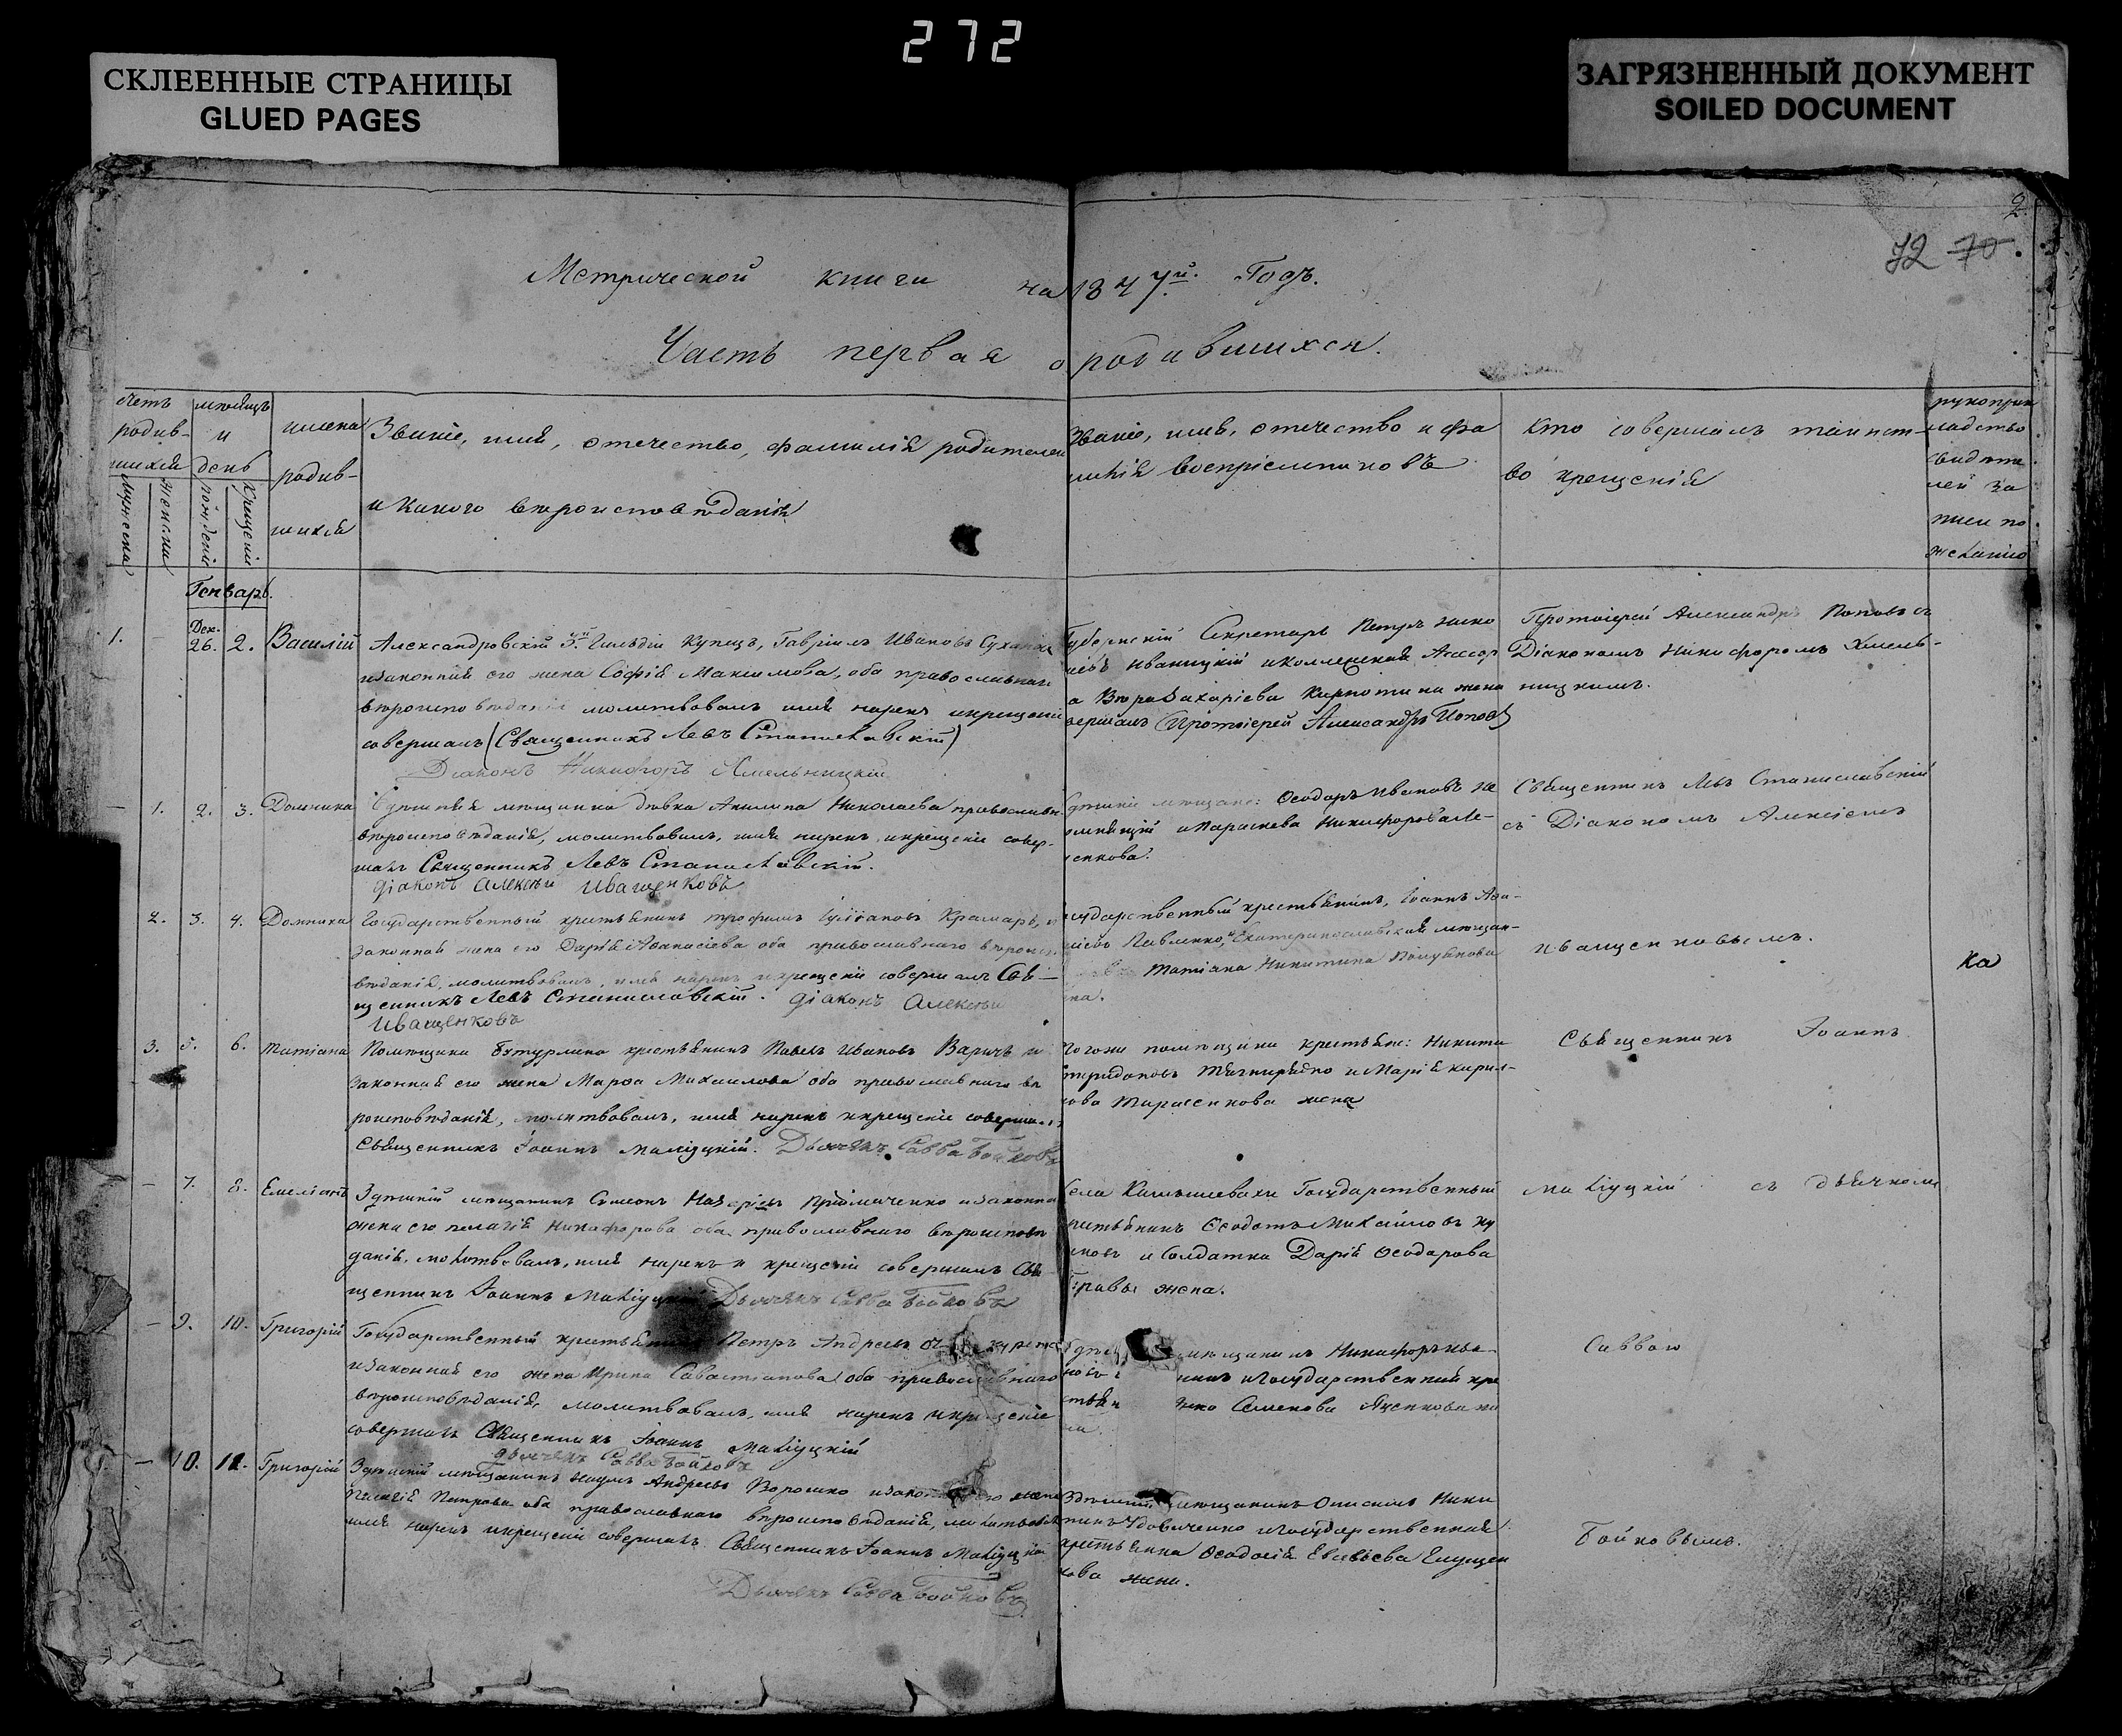 272
СКЛЕЕННЫЕ СТРАНИЦЫ
GLUED PAGES
ЗАГРЯЗНЕННЫЙ ДОКУМЕНТ
SOILED DOCUMENT
2.
72 70.
Метрической книги на 1847й. Годъ.
Часть первая о родившихся.
Счетъ родив-шихся
Мужеска
Женски
мѣсяцъ и день
рожденія
Крещенія
имена родив-шихся
Званіе, имя, отечество, фамилія родителей
и Какого вѣроисповѣданія
Званіе, имя, отечество и фа
милія воспріемниковъ
Кто совершалъ таинст-
во крещенія
рукоприк
ладство
свидѣте
лей за
писи по
желанію
Генварь.
1. - Дек. 26. 2. Василій
Александровскій 3й Гильдіи Купецъ, Гавріилъ Ивановъ
и законная его жена Софія Максимова, оба православнаго
вѣроисповѣданія молитвовалъ имя нарекъ и крещеніе
совершалъ (Священникъ Левъ Станиславскій)
Діаконъ Никифоръ Хмельницкій
Губернскій Секретарь Петръ
Иваницкій и Коллежскій Асесор
а Вѣра Захаріева Кирпотина жена
вершалъ Протоіерей Александръ Поповъ
Протоіерей Александръ Поповъ съ
Діакономъ Никифоромъ Хмель-
ницкимъ.
- 1. 2. 3. Домника
Здѣшняя мѣщанка дѣвка Акилина Николаева православн
вѣроисповѣданія, молитвовалъ, имя нарекъ и крещеніе совер-
шалъ Священникъ Левъ Станиславскій.
діаконъ Алексѣй Иващенковъ
мѣщане: Ѳеодоръ Ивановъ
и Параскева Никифорова Ле-
сенкова.
Священникъ Левъ Станиславскій
съ Діакономъ Алексіемъ
2. 3. 4. Домника
Государственный крестьянинъ Трофимъ Крамарь, и
законная жена его Дарія Аѳанасіева оба православнаго вѣроиспо
вѣданія, молитвовалъ, имя нарекъ и крещеніе совершалъ Свя-
щенникъ Левъ Станиславскій. діаконъ Алексѣй
Иващенковъ
государственный крестьянинъ, Іоаннъ
Павленко, и Екатеринославская мѣщан-
Татіана Никитина
на.
Иващенковымъ.
ка
3. 5. 6. Татіана
Помѣщика Бутурлина крестьянинъ Павелъ Ивановъ Варичъ и
законная его жена Марѳа Михаилова оба православнаго вѣ
роисповѣданія, молитвовалъ, имя нарекъ и крещеніе совершал
Священникъ Іоаннъ Малѣуцкій. Дьячекъ Савва Бойковъ
Тогожъ помѣщика крестьяне: Никита
и Марія Кирил-
лова Тарасенкова жена
Священникъ Іоаннъ
- 7. 8. Емеліанъ
Здѣшній мѣщанинъ Симеонъ Назаріевъ и законна
жена его Пелагія Никифорова оба православнаго вѣроисповѣ
данія, молитвовалъ, имя нарекъ и крещеніе совершалъ Свя
щенникъ Іоаннъ Малѣуцкій Дьячекъ Савва Бойковъ
Села Камышевахи Государственный
крестьянинъ Ѳеодотъ Михаиловъ
и Солдатка Дарія Ѳеодорова
жена.
Малѣуцкій съ дьячкомъ
- 9. 10. Григорій
Государственный крестьянинъ Петръ Андреевъ
и законная его жена Ирина Савастіанова оба православнаго
вѣроисповѣданія, молитвовалъ, имя нарекъ и крещеніе
совершалъ Священникъ Іоаннъ Малѣуцкій
дьячекъ Савва Бойковъ
мѣщанинъ Никифоръ
и Государственная кре
Семенова
Саввою
- 10. 12. Григорій
Здѣшній мѣщанинъ Наумъ Андреевъ Ворошко и законная его жена
Пелагія Петрова оба православнаго вѣроисповѣданія, молитвовалъ
имя нарекъ и крещеніе совершалъ Священникъ Іоаннъ Малѣуцкій
Дьячекъ Савва Бойковъ
Здѣшній мѣщанинъ Онисимъ Ники
тинъ Удовиченко и Государственная
крестьянка Ѳеодосія Евсевіева
кова жена.
Бойковымъ.